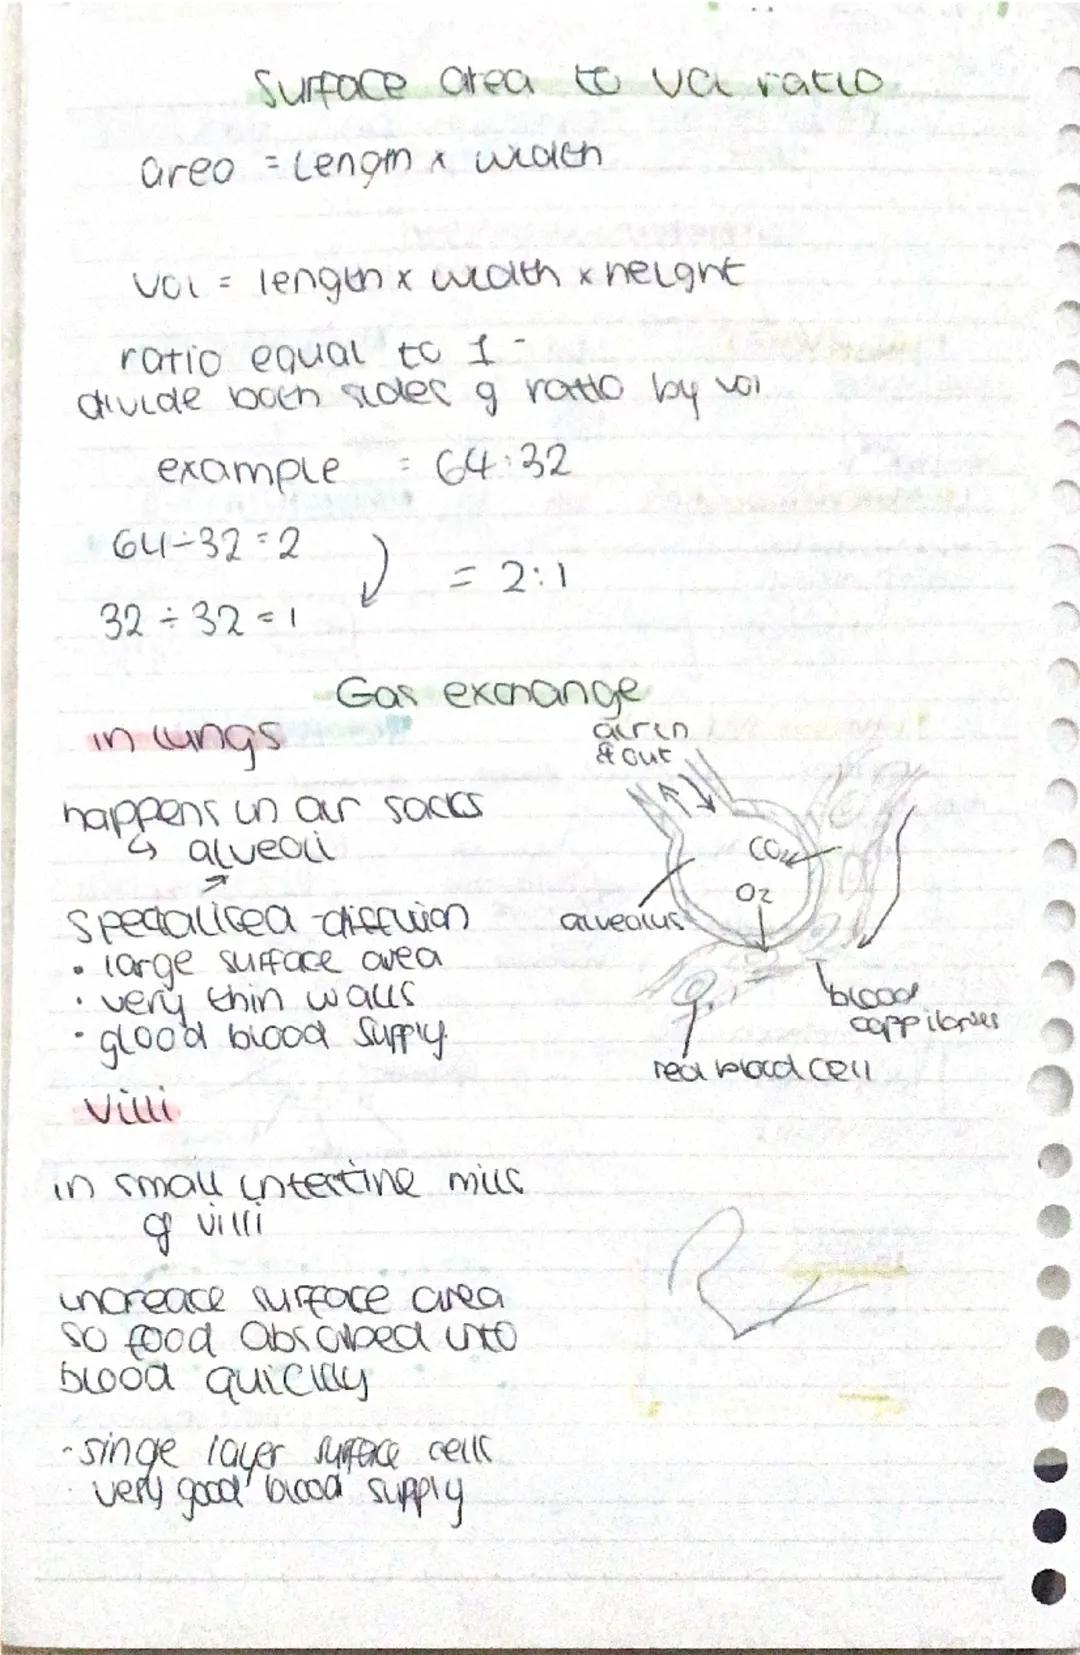 Surface area to vol ratio
area = Length x width
vol = length x width x height
ratio equal to 1 -
divide both sides of ratio by vol.
example = 64:32
64÷32=2
= 2:1
32÷32=1
Gas exchange
in lungs
air in
& out
happens in air sacks
↳ alveoli
CO2
O2
alveolus
specialised -diffusion
• large surface area
• very thin walls
• glood blood supply.
blood
cappilaries
red blood cell
Villi
in small intestine mills
of villi
increase surface area
so food absorbed into
blood quickly
-singe layer surface cells
· very good blood supply